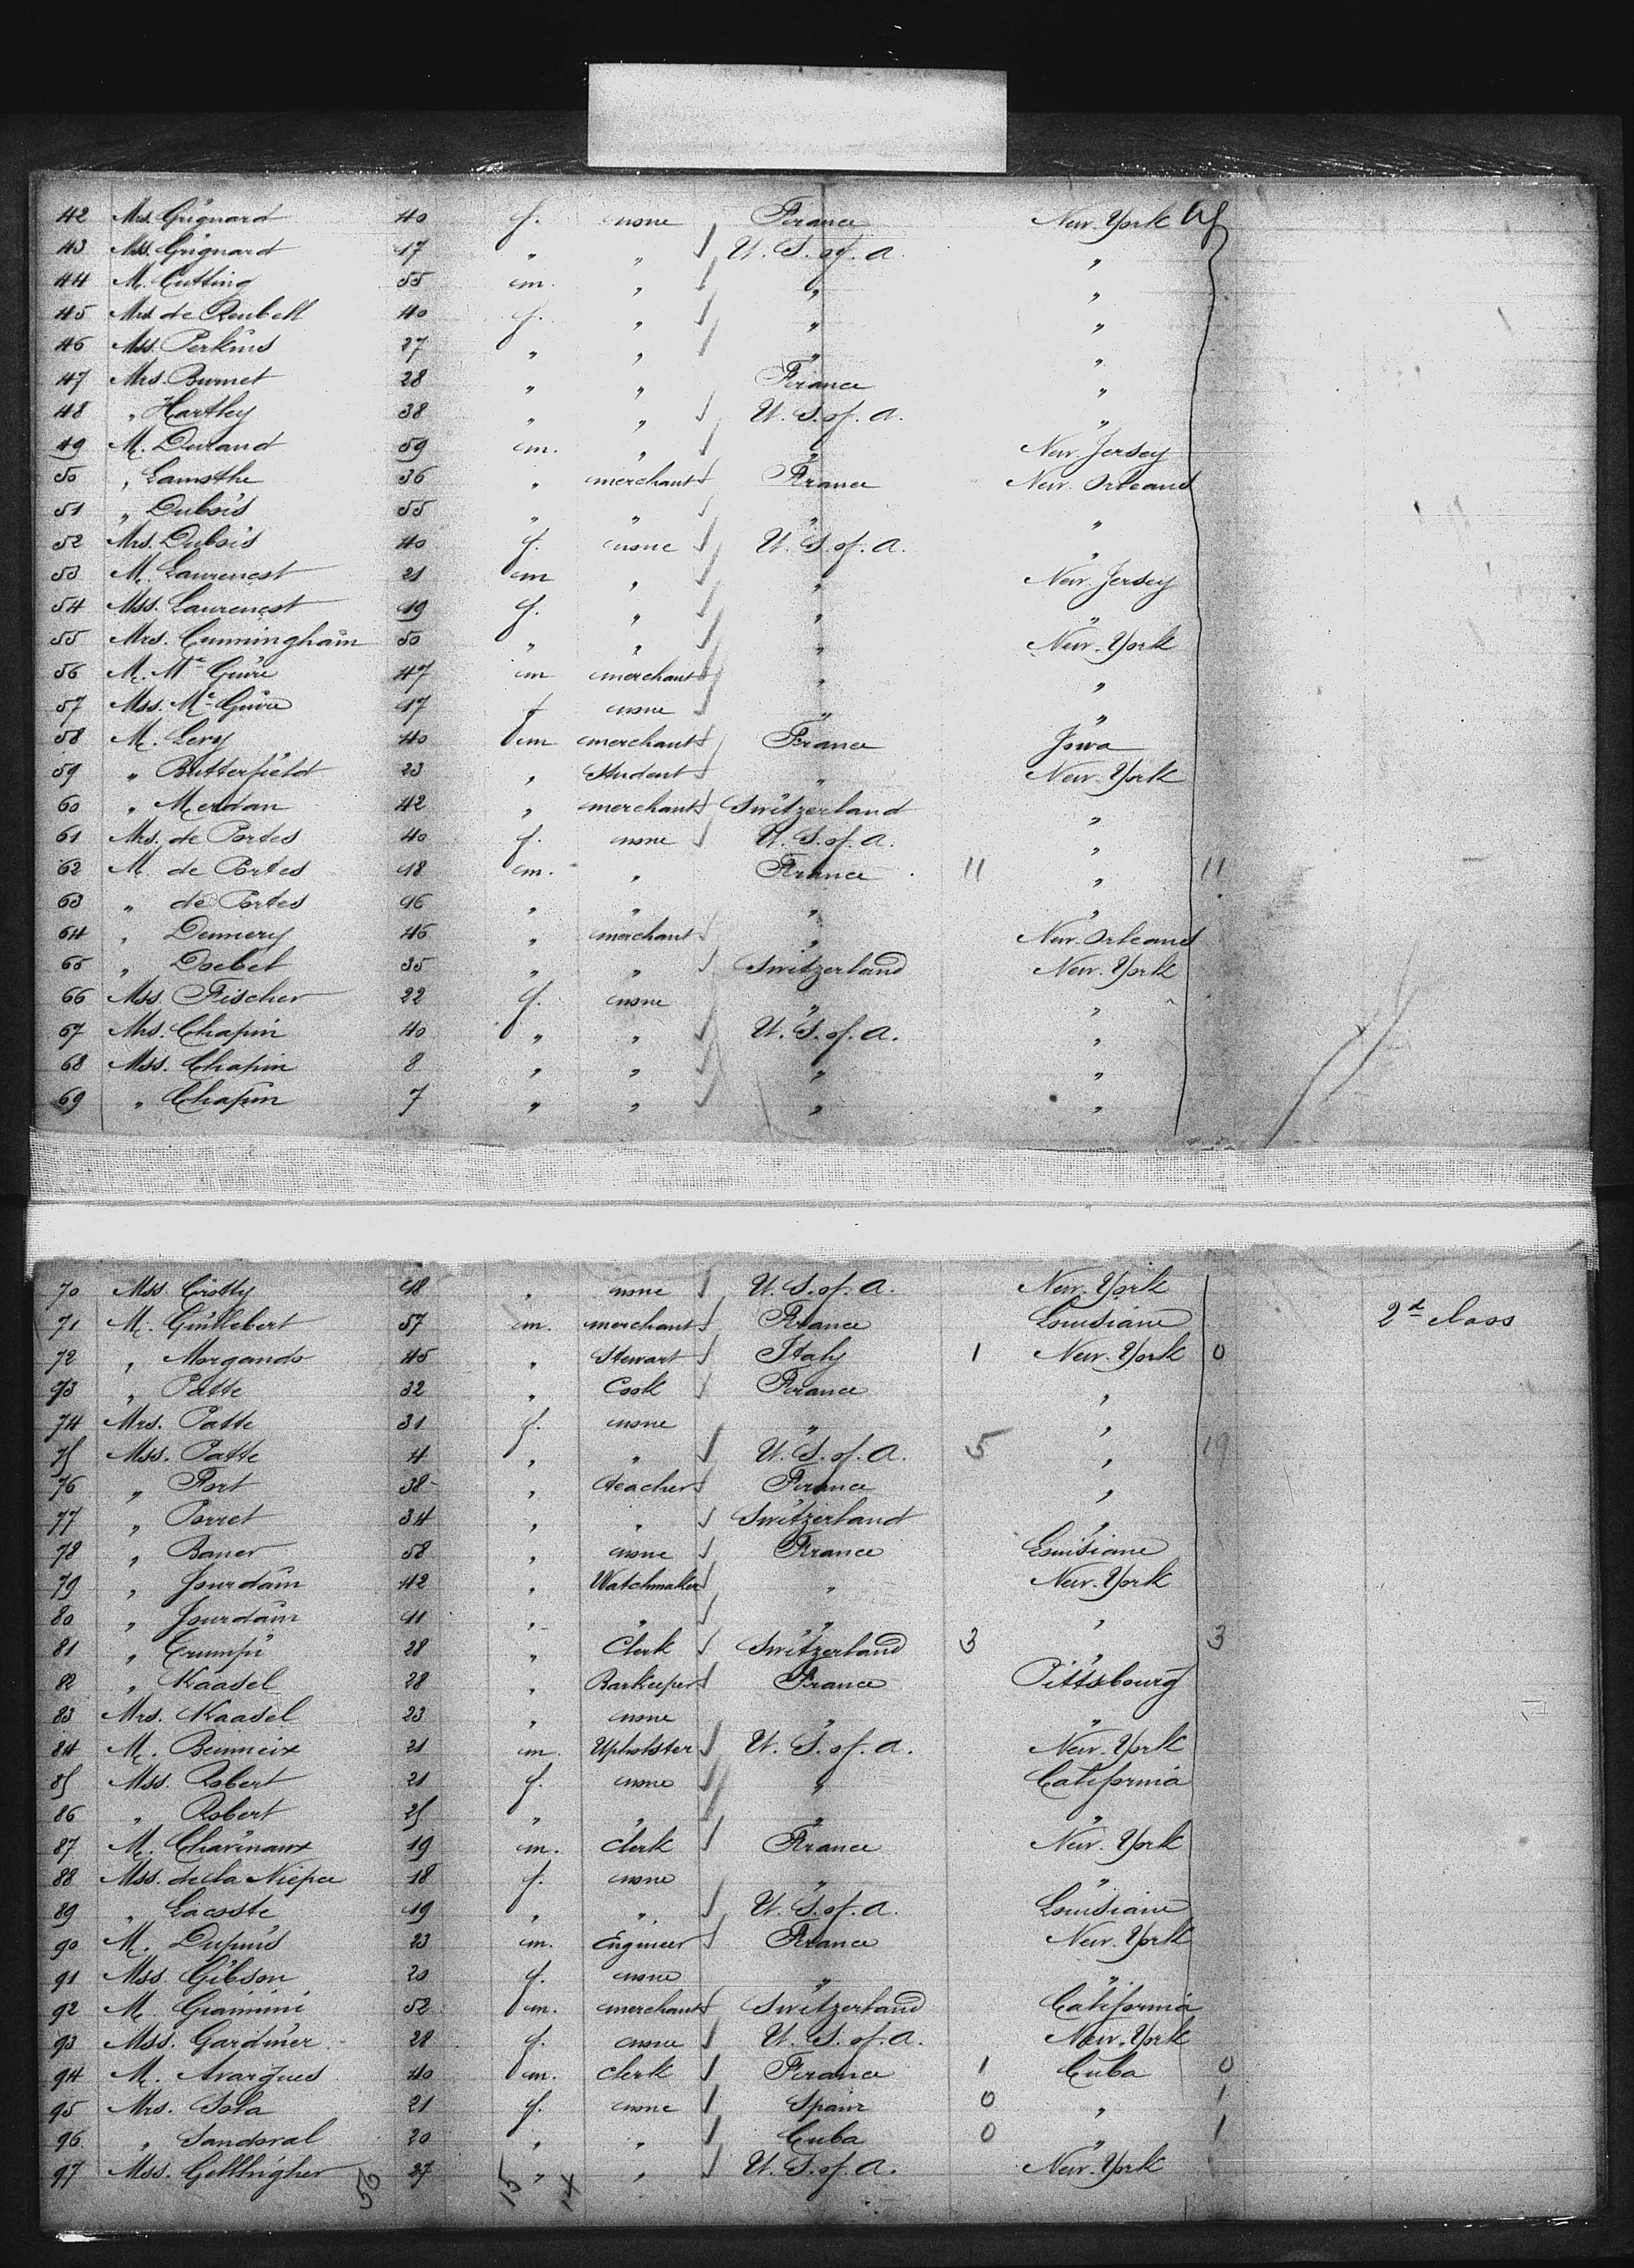 42 Mrs. Grignard 40 f. none France New-York
43 Mss. Grignard 17 " " U. S. of. A. "
44 M. Cutting 55 m. " " "
45 Mrs de Roubell 40 f. " " "
46 Mss. Perkins 27 " " " "
47 Mrs. Burnet 28 " " France "
48 " Hartley 38 " " U. S. of. A. "
49 M. Durand 59 m. " " New-Jersey
50 " Lamothe 36 " merchant France New-Orleans
51 " Dubois 55 " " " "
52 Mrs. Dubois 40 f. none U. S. of. A. "
53 M. Laurencst 21 m " " New-Jersey
54 Mss. Laurencst 19 f. " " "
55 Mrs. Cunningham 50 " " " New-York
56 M. Mc Guire 47 m merchant " "
57 Mss. Mc Guire 17 f none " "
58 M. Levy 40 m merchant France Jowa
59 " Butterfield 23 " Student " New-York
60 " Merdan 42 " merchant Switzerland "
61 Mrs. de Portes 40 f. none U. S. of. A. "
62 M de Portes 18 m. " France 11 " 11
63 " de Portes 16 " " " "
64 " Dennery 46 " merchant " New-Orleans
65 " Doebel 35 " " Switzerland New-York
66 Mss. Fischer 22 f. none " "
67 Mrs. Chapin 40 " " U. S. of. A. "
68 Mss. Chapin 8 " " " "
69 " Chapin 7 " " " "
70 Mss. Crotty 18 " none U. S. of. A. New-York
71 M. Guillebert 57 m. merchant France Louisiane 2d class
72 " Morgando 45 " Stewart Italy 1 New-York 0
73 " Patte 32 " Cook France "
74 Mrs. Patte 31 f. none " "
75 Mss. Patte 4 " " U. S. of. A. 5 " 19
76 " Fort 38 " teacher France "
77 " Porret 34 " " Switzerland "
78 " Baner 58 " none France Louisiane
79 " Jourdain 42 " Watchmaker " New-York
80 " Jourdain 11 " " " "
81 " Crumpi 28 " Clerk Switzerland 3 " 3
82 " Kaasel 28 " Barkeeper France Pittsbourg
83 Mrs. Kaasel 23 " none " "
84 M. Beinneix 21 m. Upholster U. S. of. A. New-York
85 Mss. Robert 21 f. none " California
86 " Robert 25 " " " "
87 M. Charinaux 19 m. Clerk France New-York
88 Mss. de la Niepce 18 f. none " "
89 " Lacoste 19 " " U. S. of. A. Louisiane
90 M. Dupuis 23 m. Engineer France New-York
91 Mss. Gibson 20 f. none " "
92 M Giannini 52 m. merchant Switzerland California
93 Mss. Gardiner 28 f. none U. S. of. A. New-York
94 M. Avargues 40 m. Clerk France 1 Cuba 0
95 Mrs. Sola 21 f. none Spain 0 " 1
96 " Sandoval 20 " " Cuba 0 " 1
97 Mss. Gellhigher 27 " " U. S. of. A. New-York
50 15 14